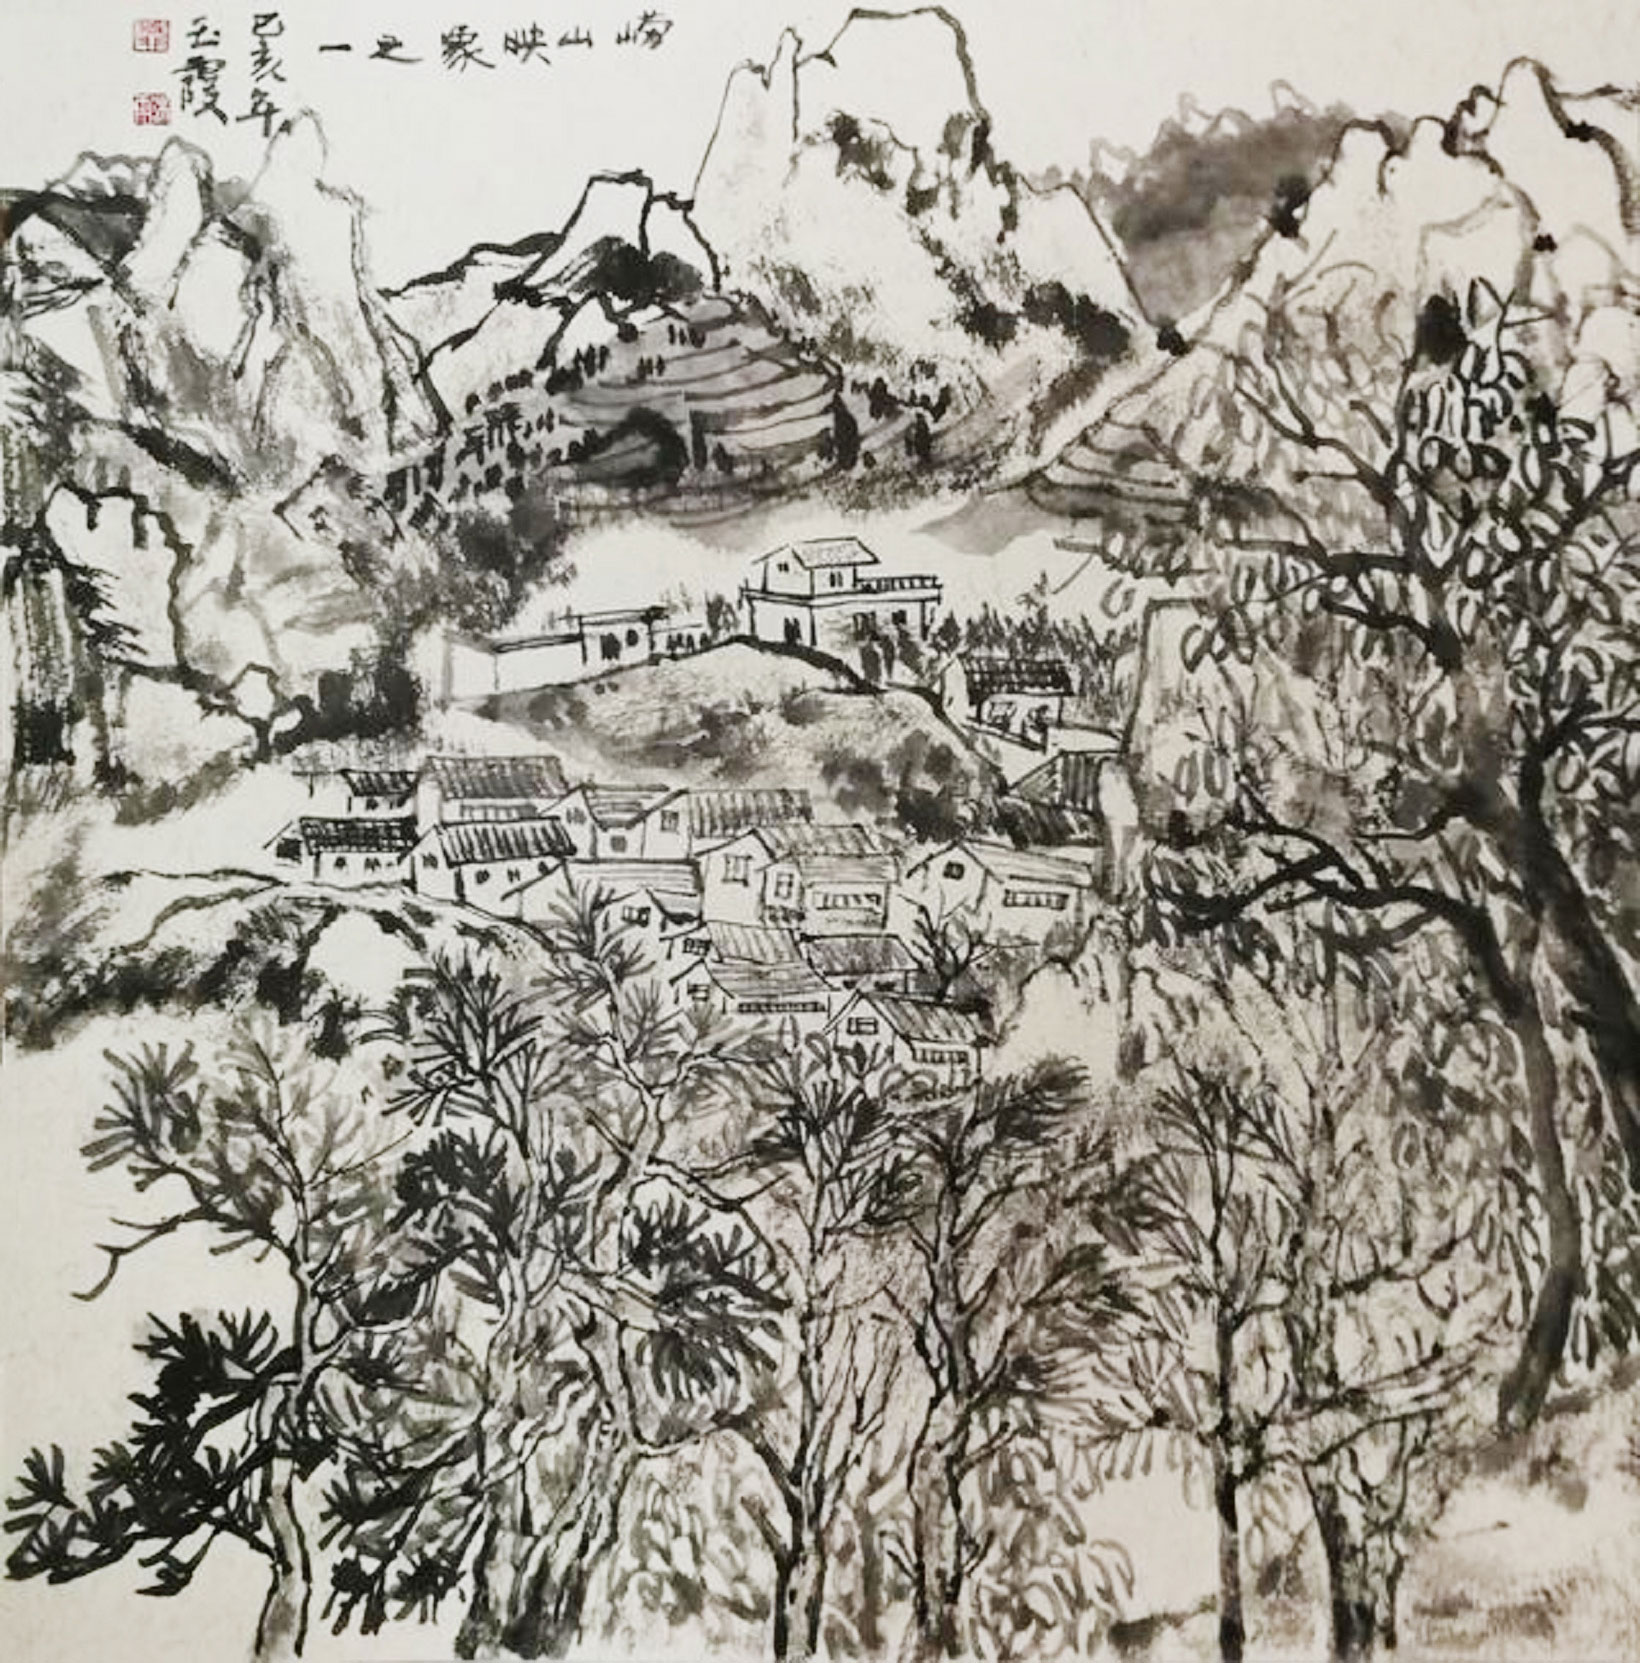 崂山映象之一
己亥年
玉霞